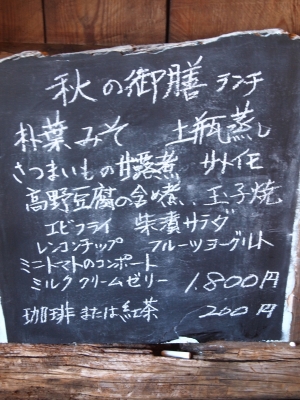 秋の御膳 ランチ
朴葉みそ 土瓶蒸し
さつまいもの甘露煮 サトイモ
高野豆腐の含め煮、玉子焼
エビフライ 柴漬サラダ
レンコンチップ フルーツヨーグルト
ミニトマトのコンポート
ミルククリームゼリー 1.800円
珈琲または紅茶 200円